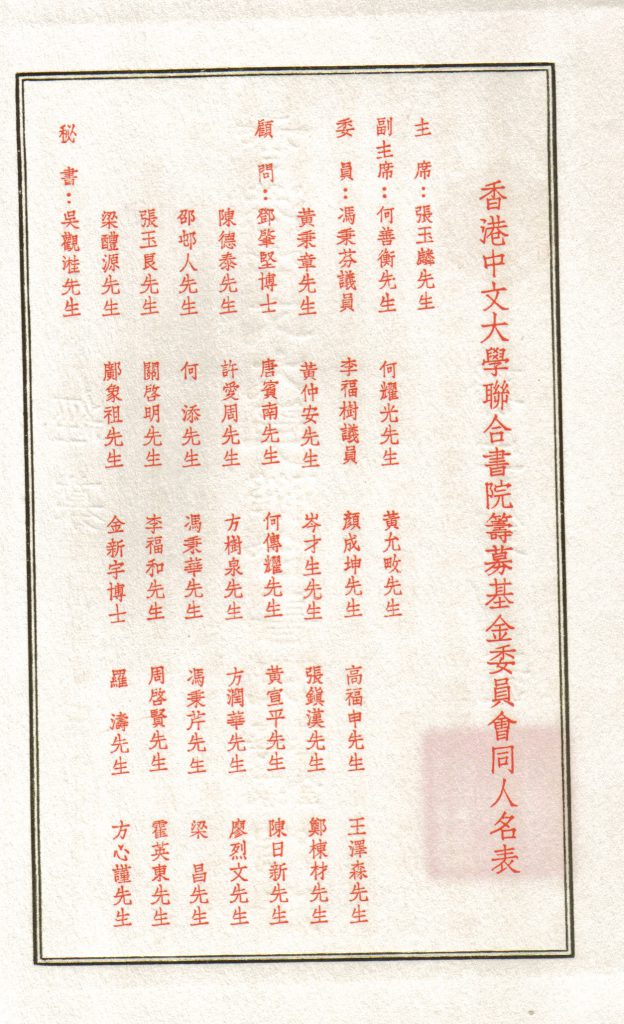 香港中文大學聯合書院籌募基金委員會同人名表
主席：張玉麟先生
副主席：何善衡先生 何耀光先生 黃允畋先生
委員：馮秉芬議員 李福樹議員 顏成坤先生 高福申先生 王澤森先生
黃秉章先生 黃仲安先生 岑才生先生 張鎮漢先生 鄭棟材先生
顧問：鄧肇堅博士 唐賓南先生 何傳耀先生 黃宣平先生 陳日新先生
陳德泰先生 許愛周先生 方樹泉先生 方潤華先生 廖烈文先生
邵邨人先生 何添先生 馮秉華先生 馮秉芹先生 梁昌先生
張玉良先生 關啓明先生 李福和先生 周啓賢先生 霍英東先生
梁醴源先生 鄺象祖先生 金新宇博士 羅濤先生 方心謹先生
秘書：吳觀潅先生